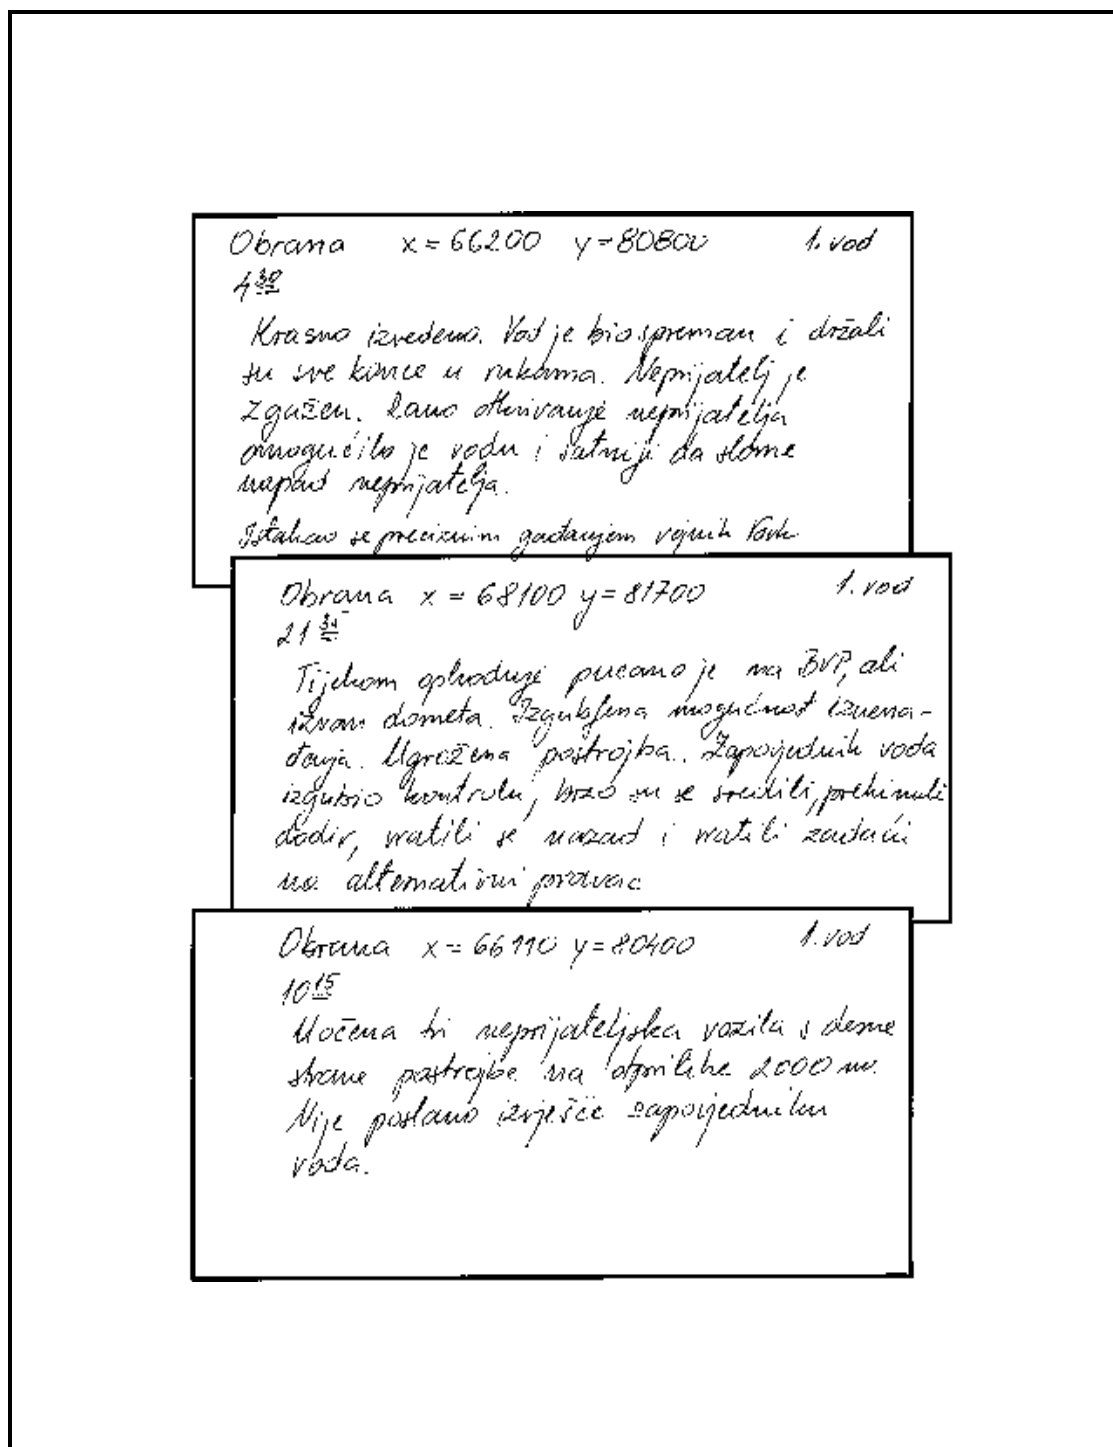 Obrana x = 66200 y = 80800 1. vod
4 30
Krasno izvedeno. Vod je bio spreman i držali
su sve konce u rukama. Neprijatelj je
zgažen. Rano otkrivanje neprijatelja
omogućilo je vodu i satniji da slome
napad neprijatelja.
Istakao se preciznim gađanjem vojnik
Obrana x = 68100 y = 81700 1. vod
21
Tijekom ophodnje pucano je na BVP, ali
izvan dometa. Izgubljena mogućnost iznena-
đenja. Ugrožena postrojba. Zapovjednik voda
izgubio kontrolu, brzo su se sredili, prekinuli
dodir, vratili se nazad i vratili
na alternativni pravac
Obrana x = 66110 y = 80400 1. vod
10 15
Uočena tri neprijateljska vozila s desne
strane postrojbe na otprilike 2000 m.
Nije poslano izvješće zapovjedniku
voda.